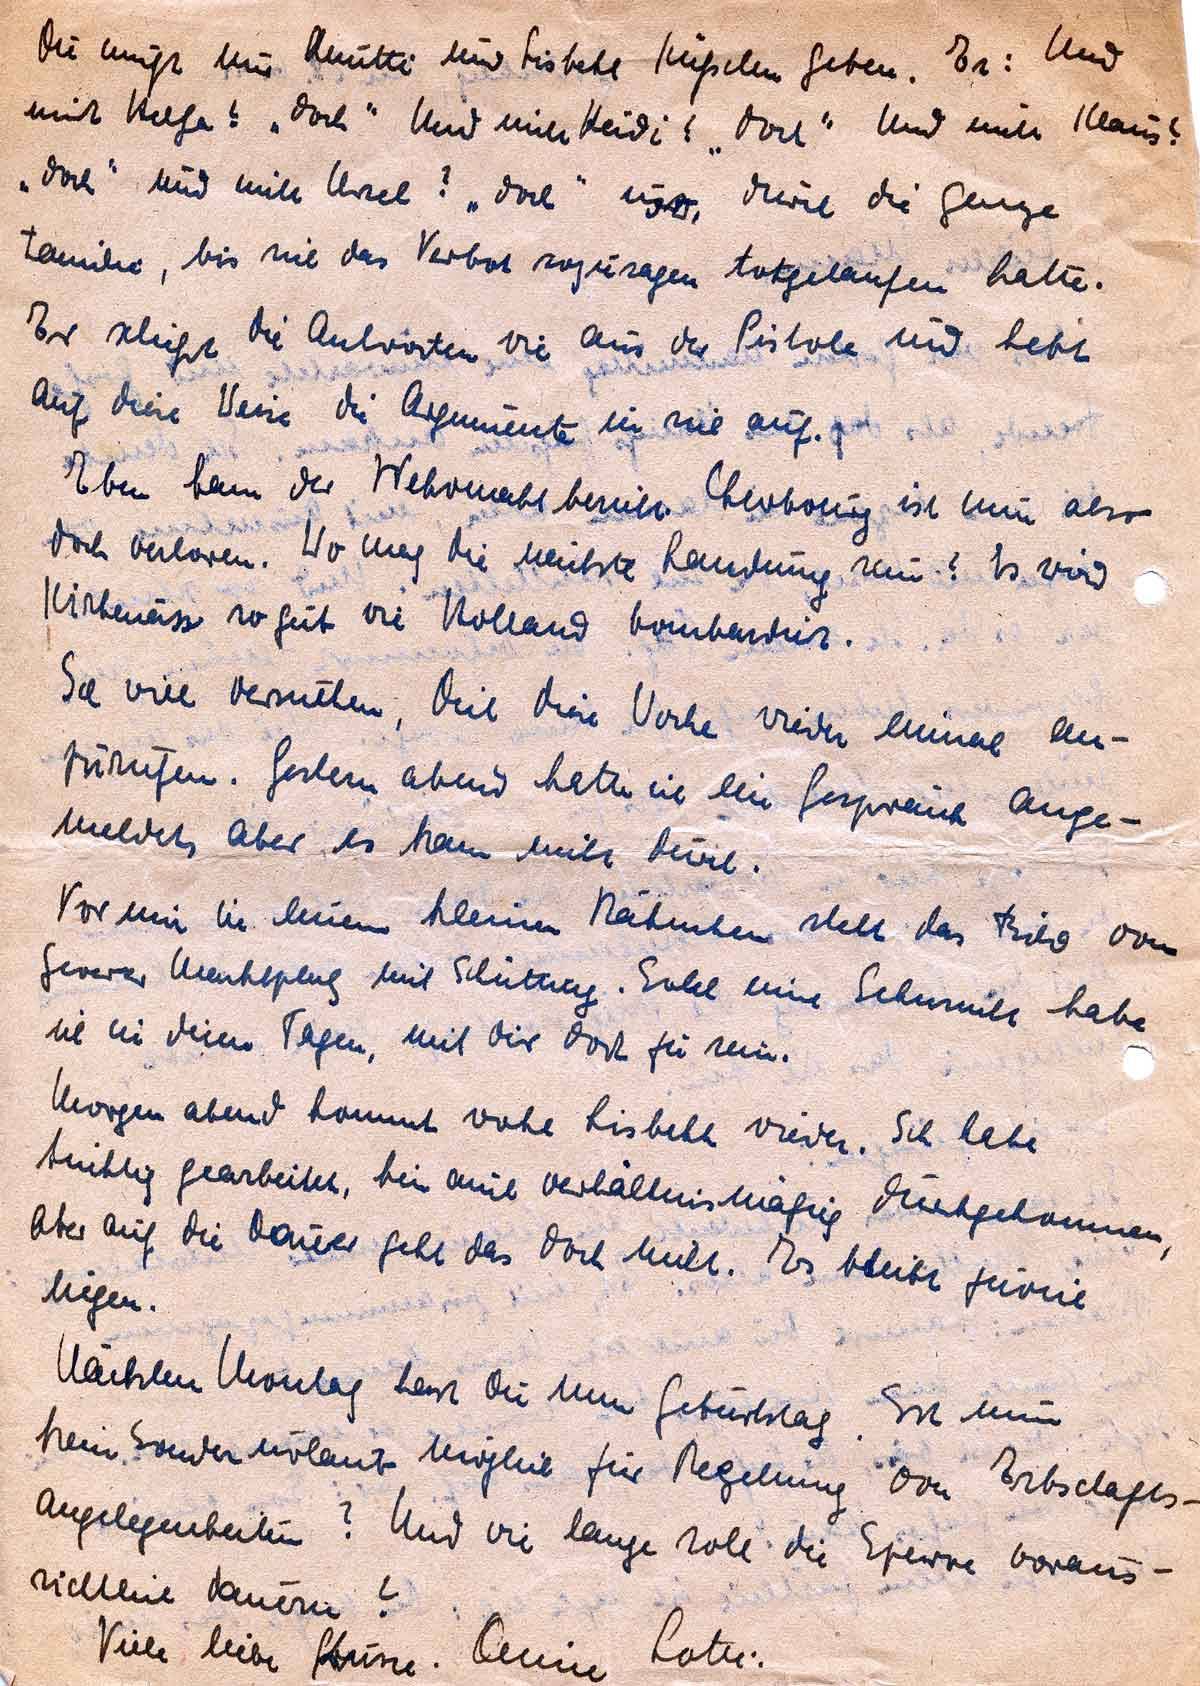 Du musst nur Mutti und Lisbeth Küsschen geben. Er: Und
mit Helga? „doch“ Und mit Heidi? „doch“ Und mit Klaus?
„doch“ und mit Ursel? „doch“ usw. durch die ganze
Familie, bis sich das Verbot sozusagen totgelaufen hatte.
Er schiesst die Antworten wie aus der Pistole und hebt
auf diese Weise die Argumente in sich auf.
Eben kam der Wehrmachtbericht. Cherbourg ist nun also
doch verloren. Wo mag die nächste Landung sein? Es wird
Kirkenäss so gut wie Holland bombardiert.
Ich will versuchen, Dich diese Woche wieder einmal an-
zurufen. Gestern abend hatte ich ein Gespräch ange-
meldet, aber es kam nicht durch.
Vor mir in einem kleinen Rähmchen steht das Bild vom
Marktplatz mit Schütting. Solch eine Sehnsucht habe
ich in diesen Tagen, mit dir dort zu sein.
Morgen abend kommt wohl Lisbeth wieder. Ich habe
tüchtig gearbeitet, bin auch verhältnismäßig durchgekommen,
aber auf die Dauer geht das doch nicht. Es bleibt zuviel
liegen.
Nächsten Montag hast du nun Geburtstag. Ist nun
kein Sonderurlaub möglich für Regelung von Erbschafts-
angelegenheiten? Und wie lange soll die Sperre voraus-
sichtlich dauern?
Viele liebe Grüsse. Deine Lotte.